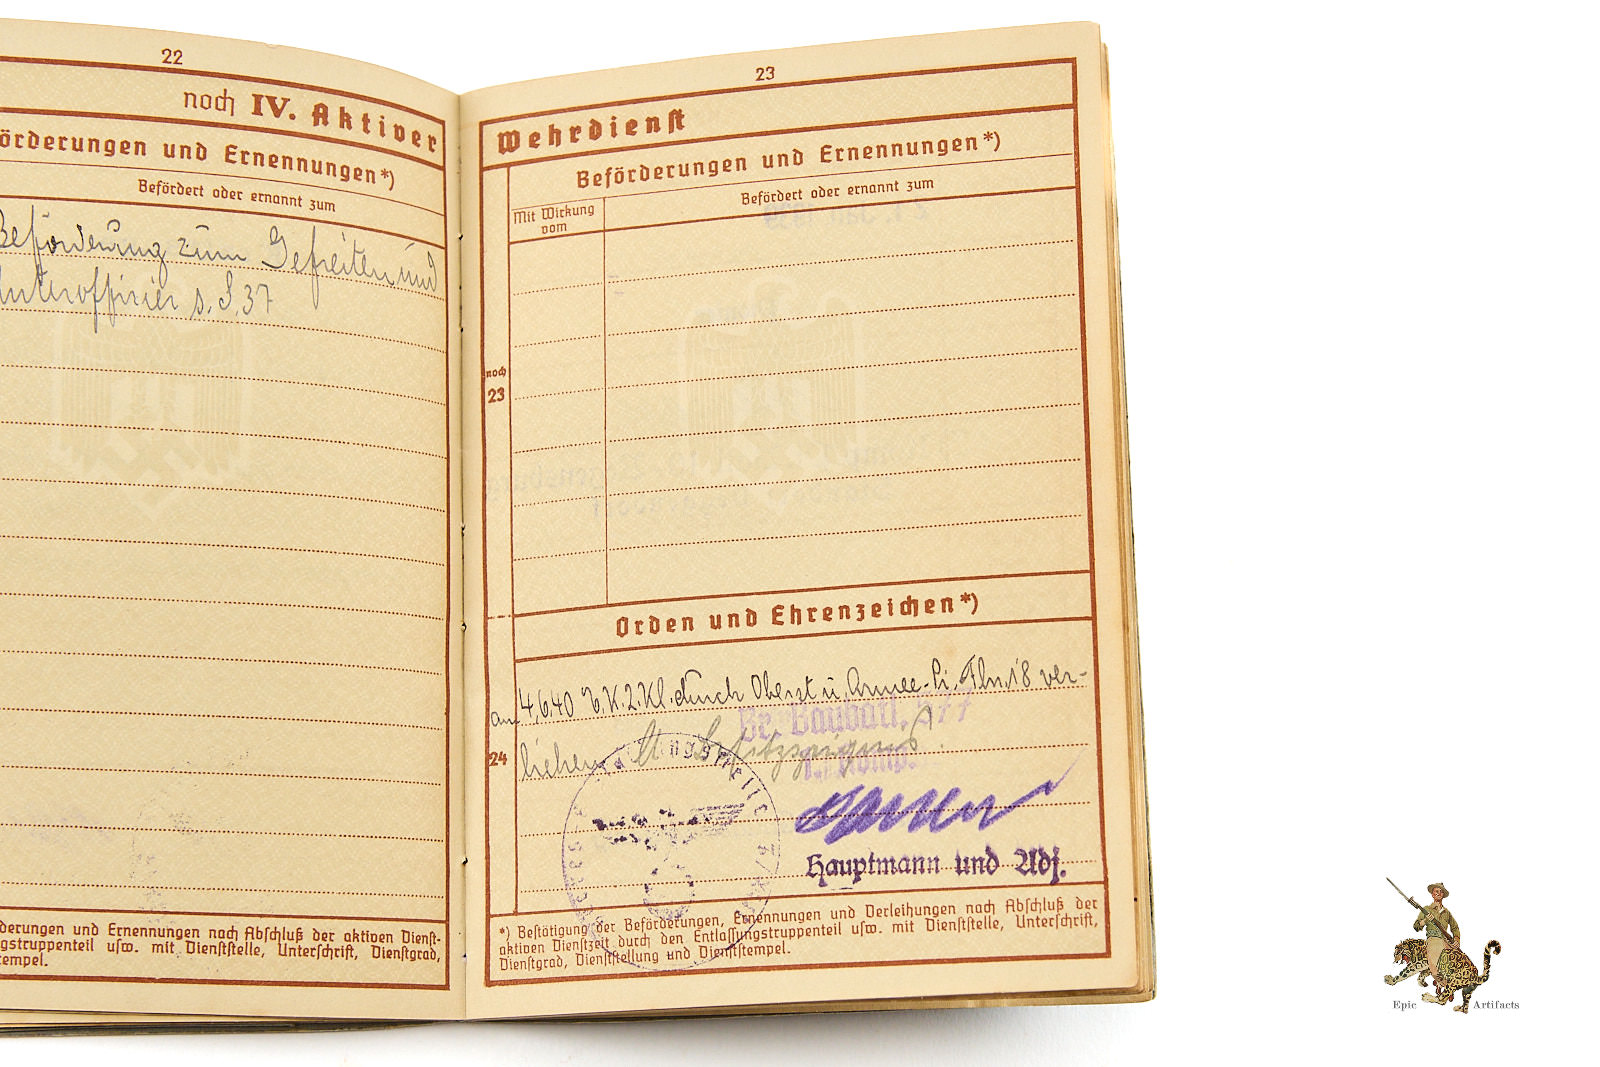 22
noch IV. Aktiver
örderungen und Ernennungen*)
Befördert oder ernannt zum
Beförderung zum Gefreiten und
Unteroffizier s. S. 37
derungen und Ernennungen nach Abschluß der aktiven Dienst-
gstruppenteil usw. mit Dienststelle, Unterschrift, Dienstgrad,
tempel.
23
Wehrdienst
Beförderungen und Ernennungen*)
Mit Wirkung vom
Befördert oder ernannt zum
noch
23
Orden und Ehrenzeichen*)
am 4.6.40 E.K.2.Kl. durch Oberst u. Armee-Pi. Fhr. 18 ver-
24
liehen
Br. Baubatl. 577
1. Komp.
Hauptmann und Adj.
*) Bestätigung der Beförderungen, Ernennungen und Verleihungen nach Abschluß der
aktiven Dienstzeit durch den Entlassungstruppenteil usw. mit Dienststelle, Unterschrift,
Dienstgrad, Dienststellung und Dienststempel.
Epic Artifacts